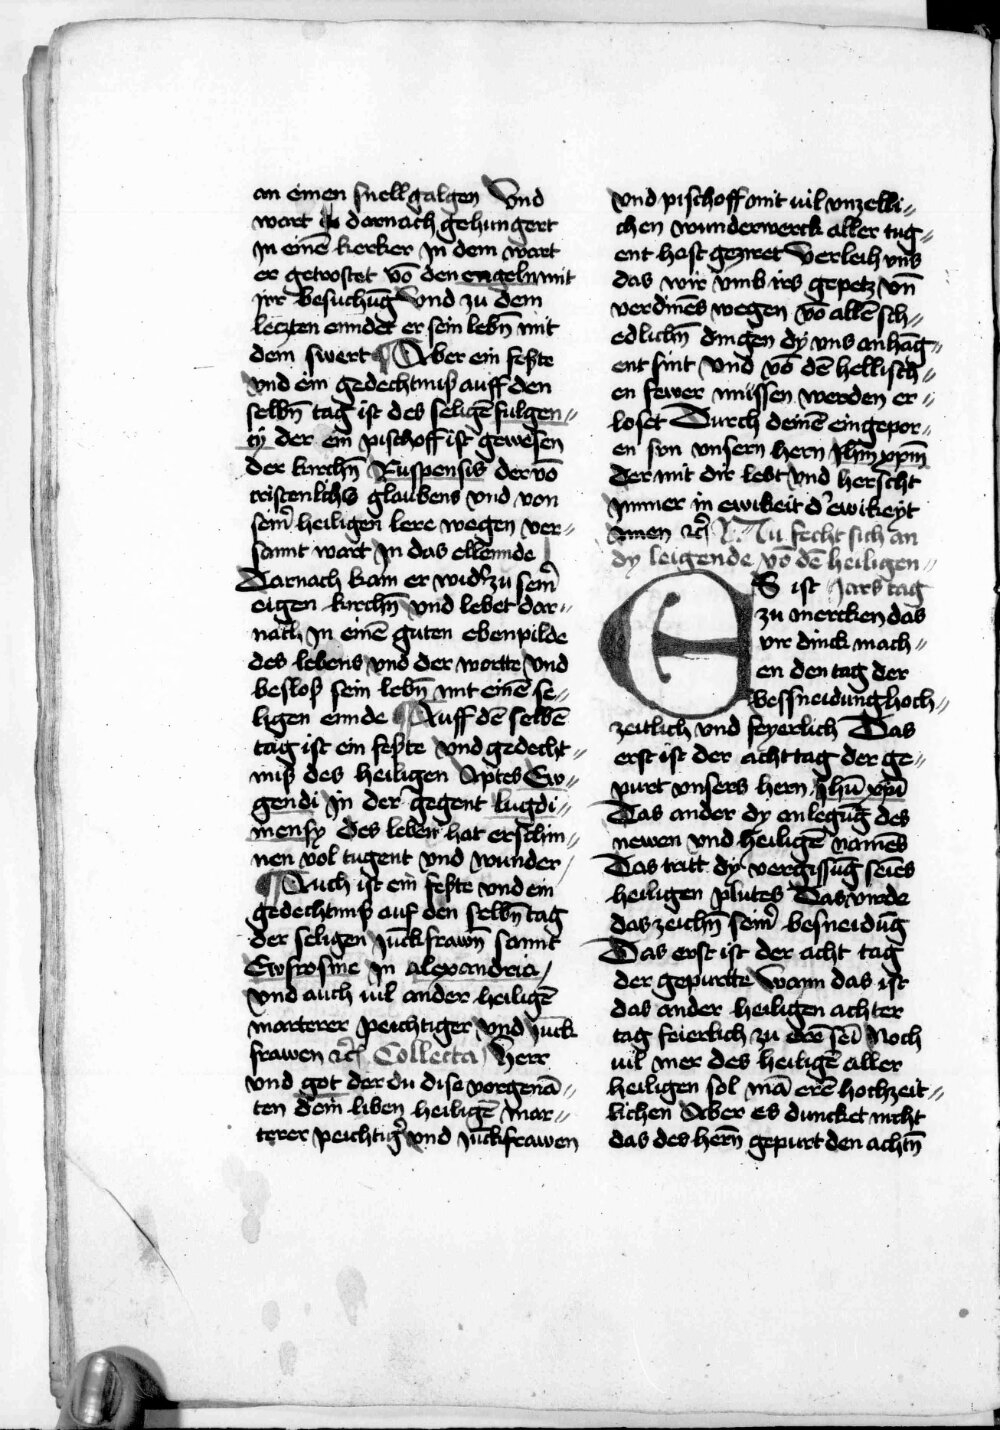 an einen snellgalgen Vnd
wart darnach gehungert
Jn einē kerker Jn dem wart
er getrostet vō den engeln mit
irr besuchūg Vnd zu dem
leczten ennidet er sein lebn̄ mit
dem swert Aber ein feste
vnd ein gedechtniß auff den
selbn̄ tag ist des seligē fulgen⸗
tÿ der ein pischoff ist gewesen
der kirchn̄ Ruspensis der vō
cristenlichs glaubens vnd von
seinr̄ heiligen lere wegen ver⸗
sannt wart Jn das ellennde
Darnach kam er wid'r zu seinr̄
eigen kirchn̄ vnd lebet dar⸗
nach Jn einē guten ebenpilde
des lebens vnd der wortte Vnd
besloß sein lebn̄ mit einē se⸗
ligen ennde Auff dē selbē
tag ist ein feste vnd gedecht⸗
niß des heiligen Aptes Ew⸗
gendi Jn der gegent lugdi⸗
mensy des leben hat erschin⸗
nen vol tugent vnd wunder
Auch ist ein feste vnd ein
gedechtniß auf den selbn̄ tag
der seligen Juckfrawn̄ sannt
Ewfrosine Jn alexandria
vnd auch vil ander heiligē
marterer peichtiger vnd Juck
frawen ꝛc̄ Collecta Herr
vnd got der du dise vorgenā⸗
ten dein liben heiligē mar⸗
terer peichtig' vnd Juckfrawen
vnd pischoff mit vil vnzelli⸗
chen wunderwerck aller tug⸗
ent hast geziret Verleich vns
das wir vmb irs gepetz vn̄
verdinēs wegen vō allē sch⸗
edlichn̄ dingen dy vns anhāg⸗
ent sint Vnd vō dē hellisch⸗
en fewer müssen werden er⸗
loset Durch deinē eingepor⸗
en sun vnsern hern Jhm̄ xpm̄
Der mit dir lebt vnd herscht
ymmer in ewikeit d' ewikeyt
Amen ꝛc̄ Nu fecht sich an
dy leigende vō dē heiligen
ES ist Jars tag
zu mercken das
vir dinck mach⸗
en den tag der
bessneidung hoch⸗
zeitlich vnd feyerlich Das
erst ist der acht tag der ge⸗
purt vnsers hern Jhū xpī
Das ander dy anlegūg des
newen vnd heiligē namēs
Das tritt dy vergissūg seīes
heiligen plutes Das virde
das zeichn̄ seinr̄ besneidūg
Das erst ist der acht tag
der gepurtte Wann das ist
das ander heiligen achter
tag feierlich zu erē seī Noch
vil mer des heiligē aller
heiligen sol mā erē hochzeit⸗
lichen Aber es duncket nicht
das des hern̄ gepurt den achtn̄